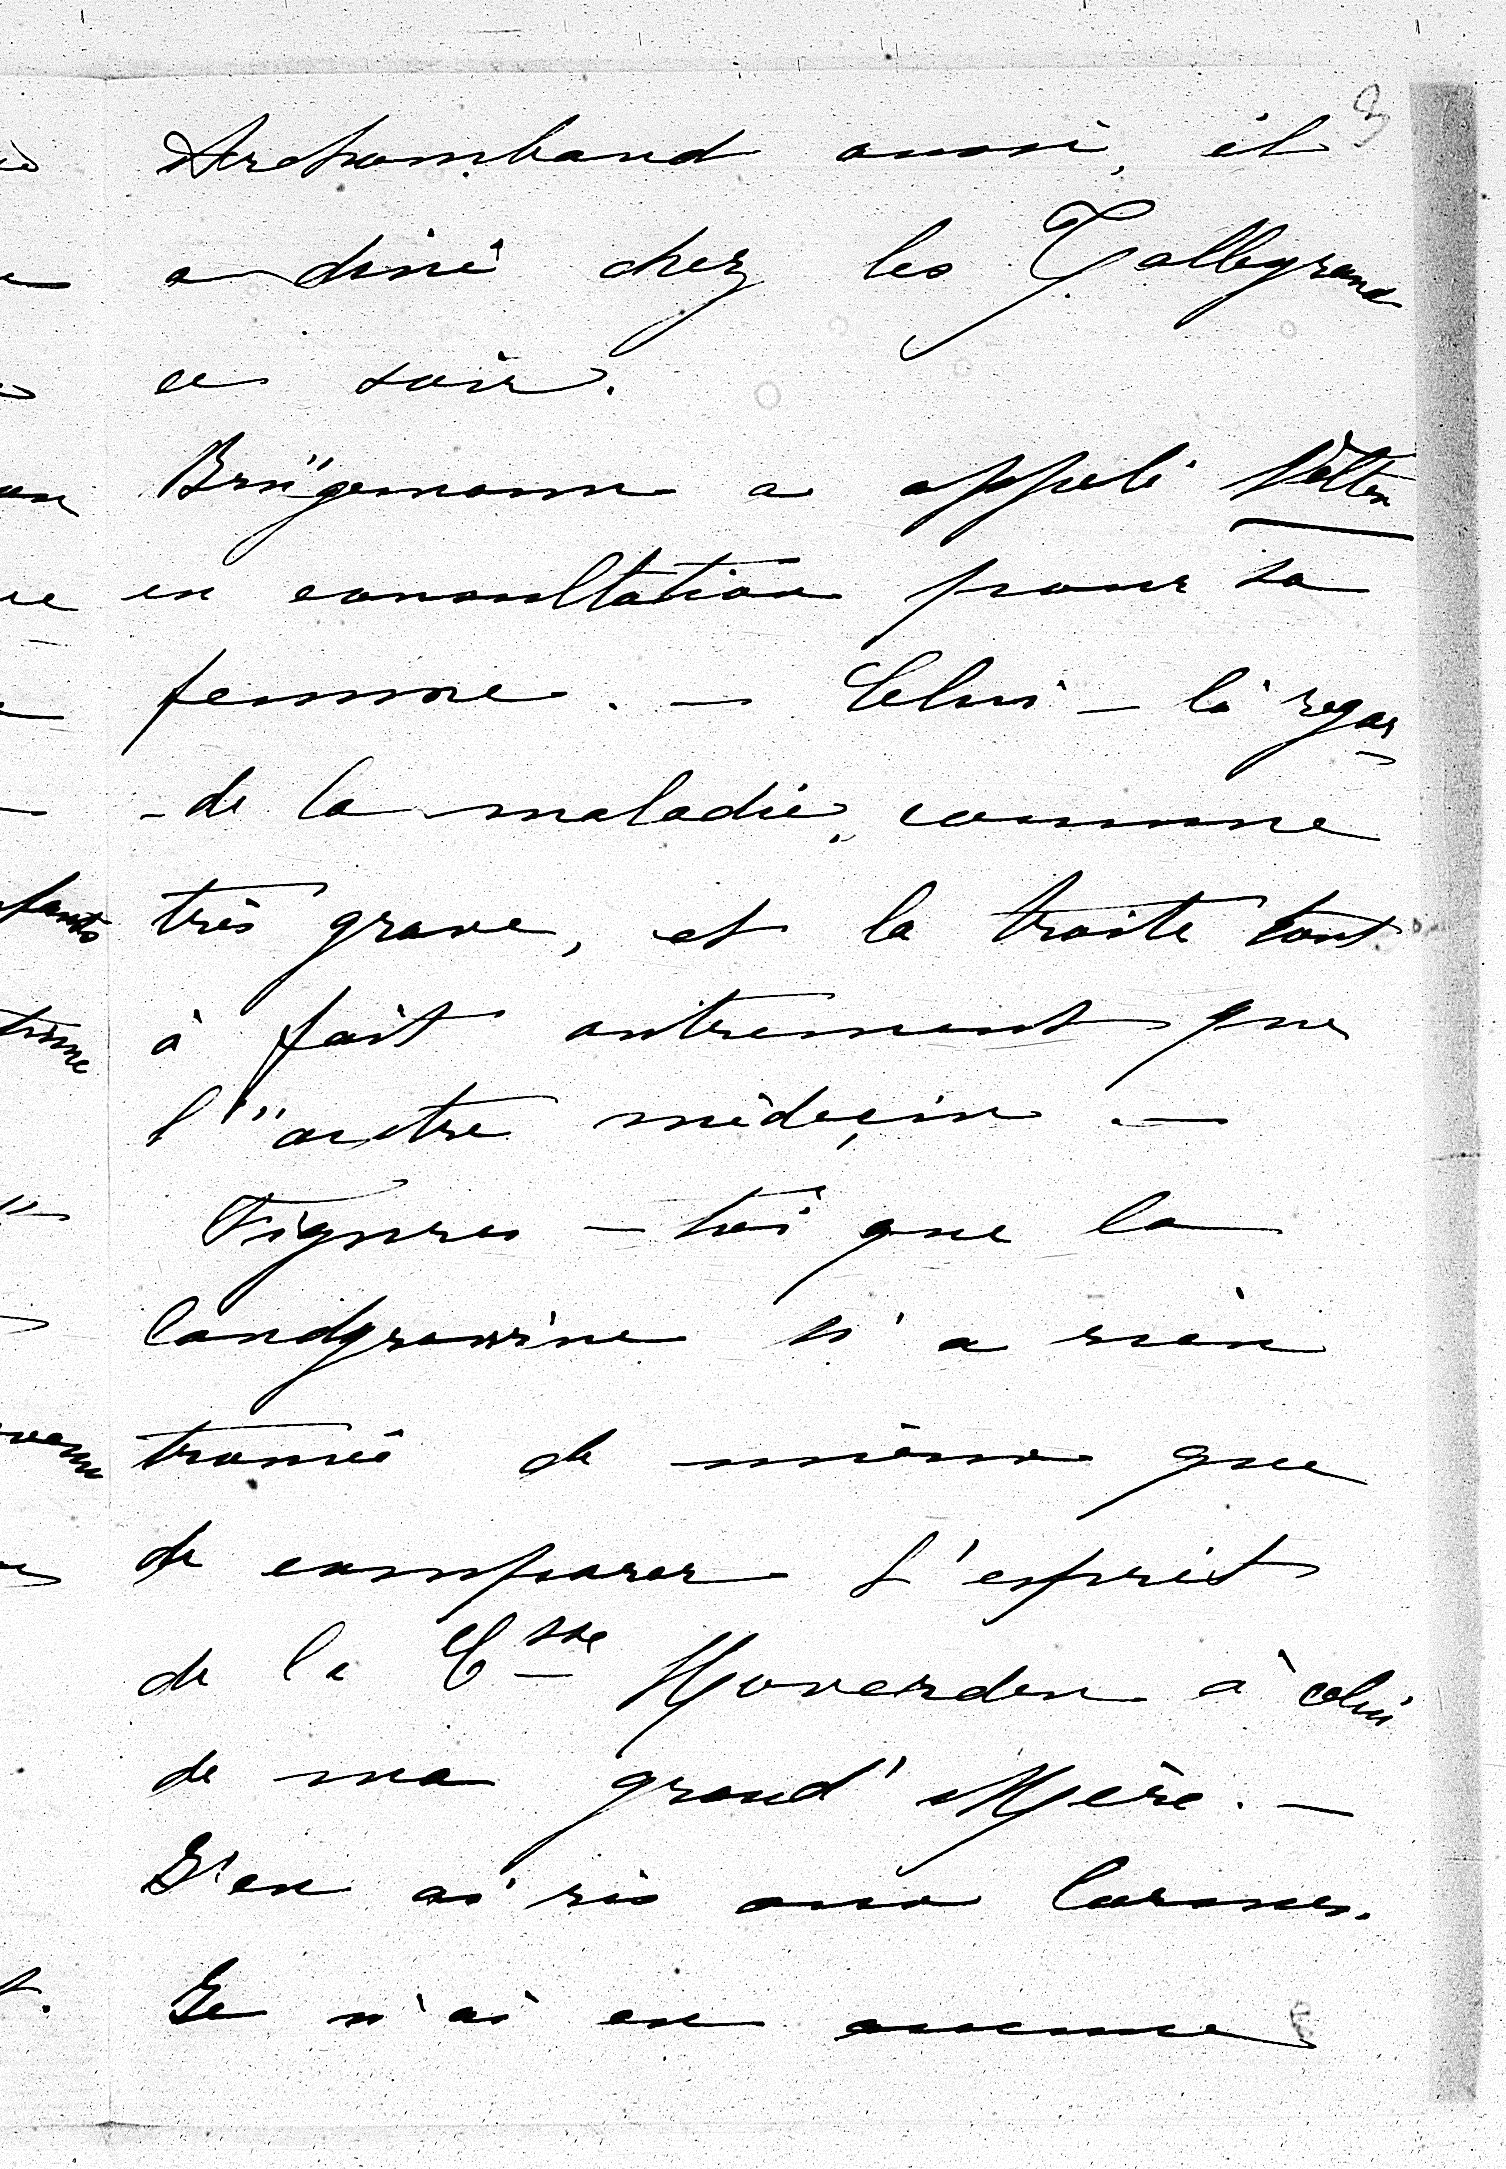 3
Archambaud aussi, il
a diné chez les Talleyrand
ce soir.
Brügemann a appelé Nolten
en consultation pour sa
femme. – Celui-là regar-
-de la maladie, comme
très grave, et la traite tout
à fait autrement que
l'autre médeçin. –
Figures-toi que la
landgravine n'a rien
trouvé de mieux que
de comparer l'esprit
de la Csse Hoverden à celui
de ma grand'Mère. –
J'en ai ris aux larmes.
Je n'ai eu aucune